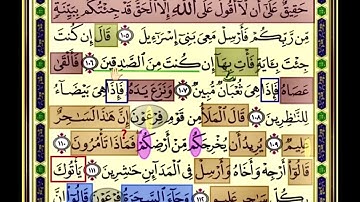 حَقِيقٌ عَلَىٰٓ أَن لَّآ أَقُولَ عَلَى ٱللَّهِ إِلَّا ٱلْحَقَّ قَدْ جِئْتُكُم بِبَيِّنَةٍ
مِّن رَّبِّكُمْ فَأَرْسِلْ مَعِىَ بَنِىٓ إِسْرَٰٓءِيلَ ١٠٥ قَالَ إِن كُنتَ
جِئْتَ بِـَٔايَةٍ فَأْتِ بِهَآ إِن كُنتَ مِنَ ٱلصَّٰدِقِينَ ١٠٦ فَأَلْقَىٰ
عَصَاهُ فَإِذَا هِىَ ثُعْبَانٌ مُّبِينٌ ١٠٧ وَنَزَعَ يَدَهُۥ فَإِذَا هِىَ بَيْضَآءُ
لِلنَّٰظِرِينَ ١٠٨ قَالَ ٱلْمَلَأُ مِن قَوْمِ فِرْعَوْنَ إِنَّ هَٰذَا لَسَٰحِرٌ
عَلِيمٌ ١٠٩ يُرِيدُ أَن يُخْرِجَكُم مِّنْ أَرْضِكُمْ فَمَاذَا تَأْمُرُونَ ١١٠
قَالُوٓا۟ أَرْجِهْ وَأَخَاهُ وَأَرْسِلْ فِى ٱلْمَدَآئِنِ حَٰشِرِينَ ١١١ يَأْتُوكَ
بِكُلِّ سَٰحِرٍ عَلِيمٍ ١١٢ وَجَآءَ ٱلسَّحَرَةُ فِرْعَوْنَ قَالُوٓا۟ إِنَّ